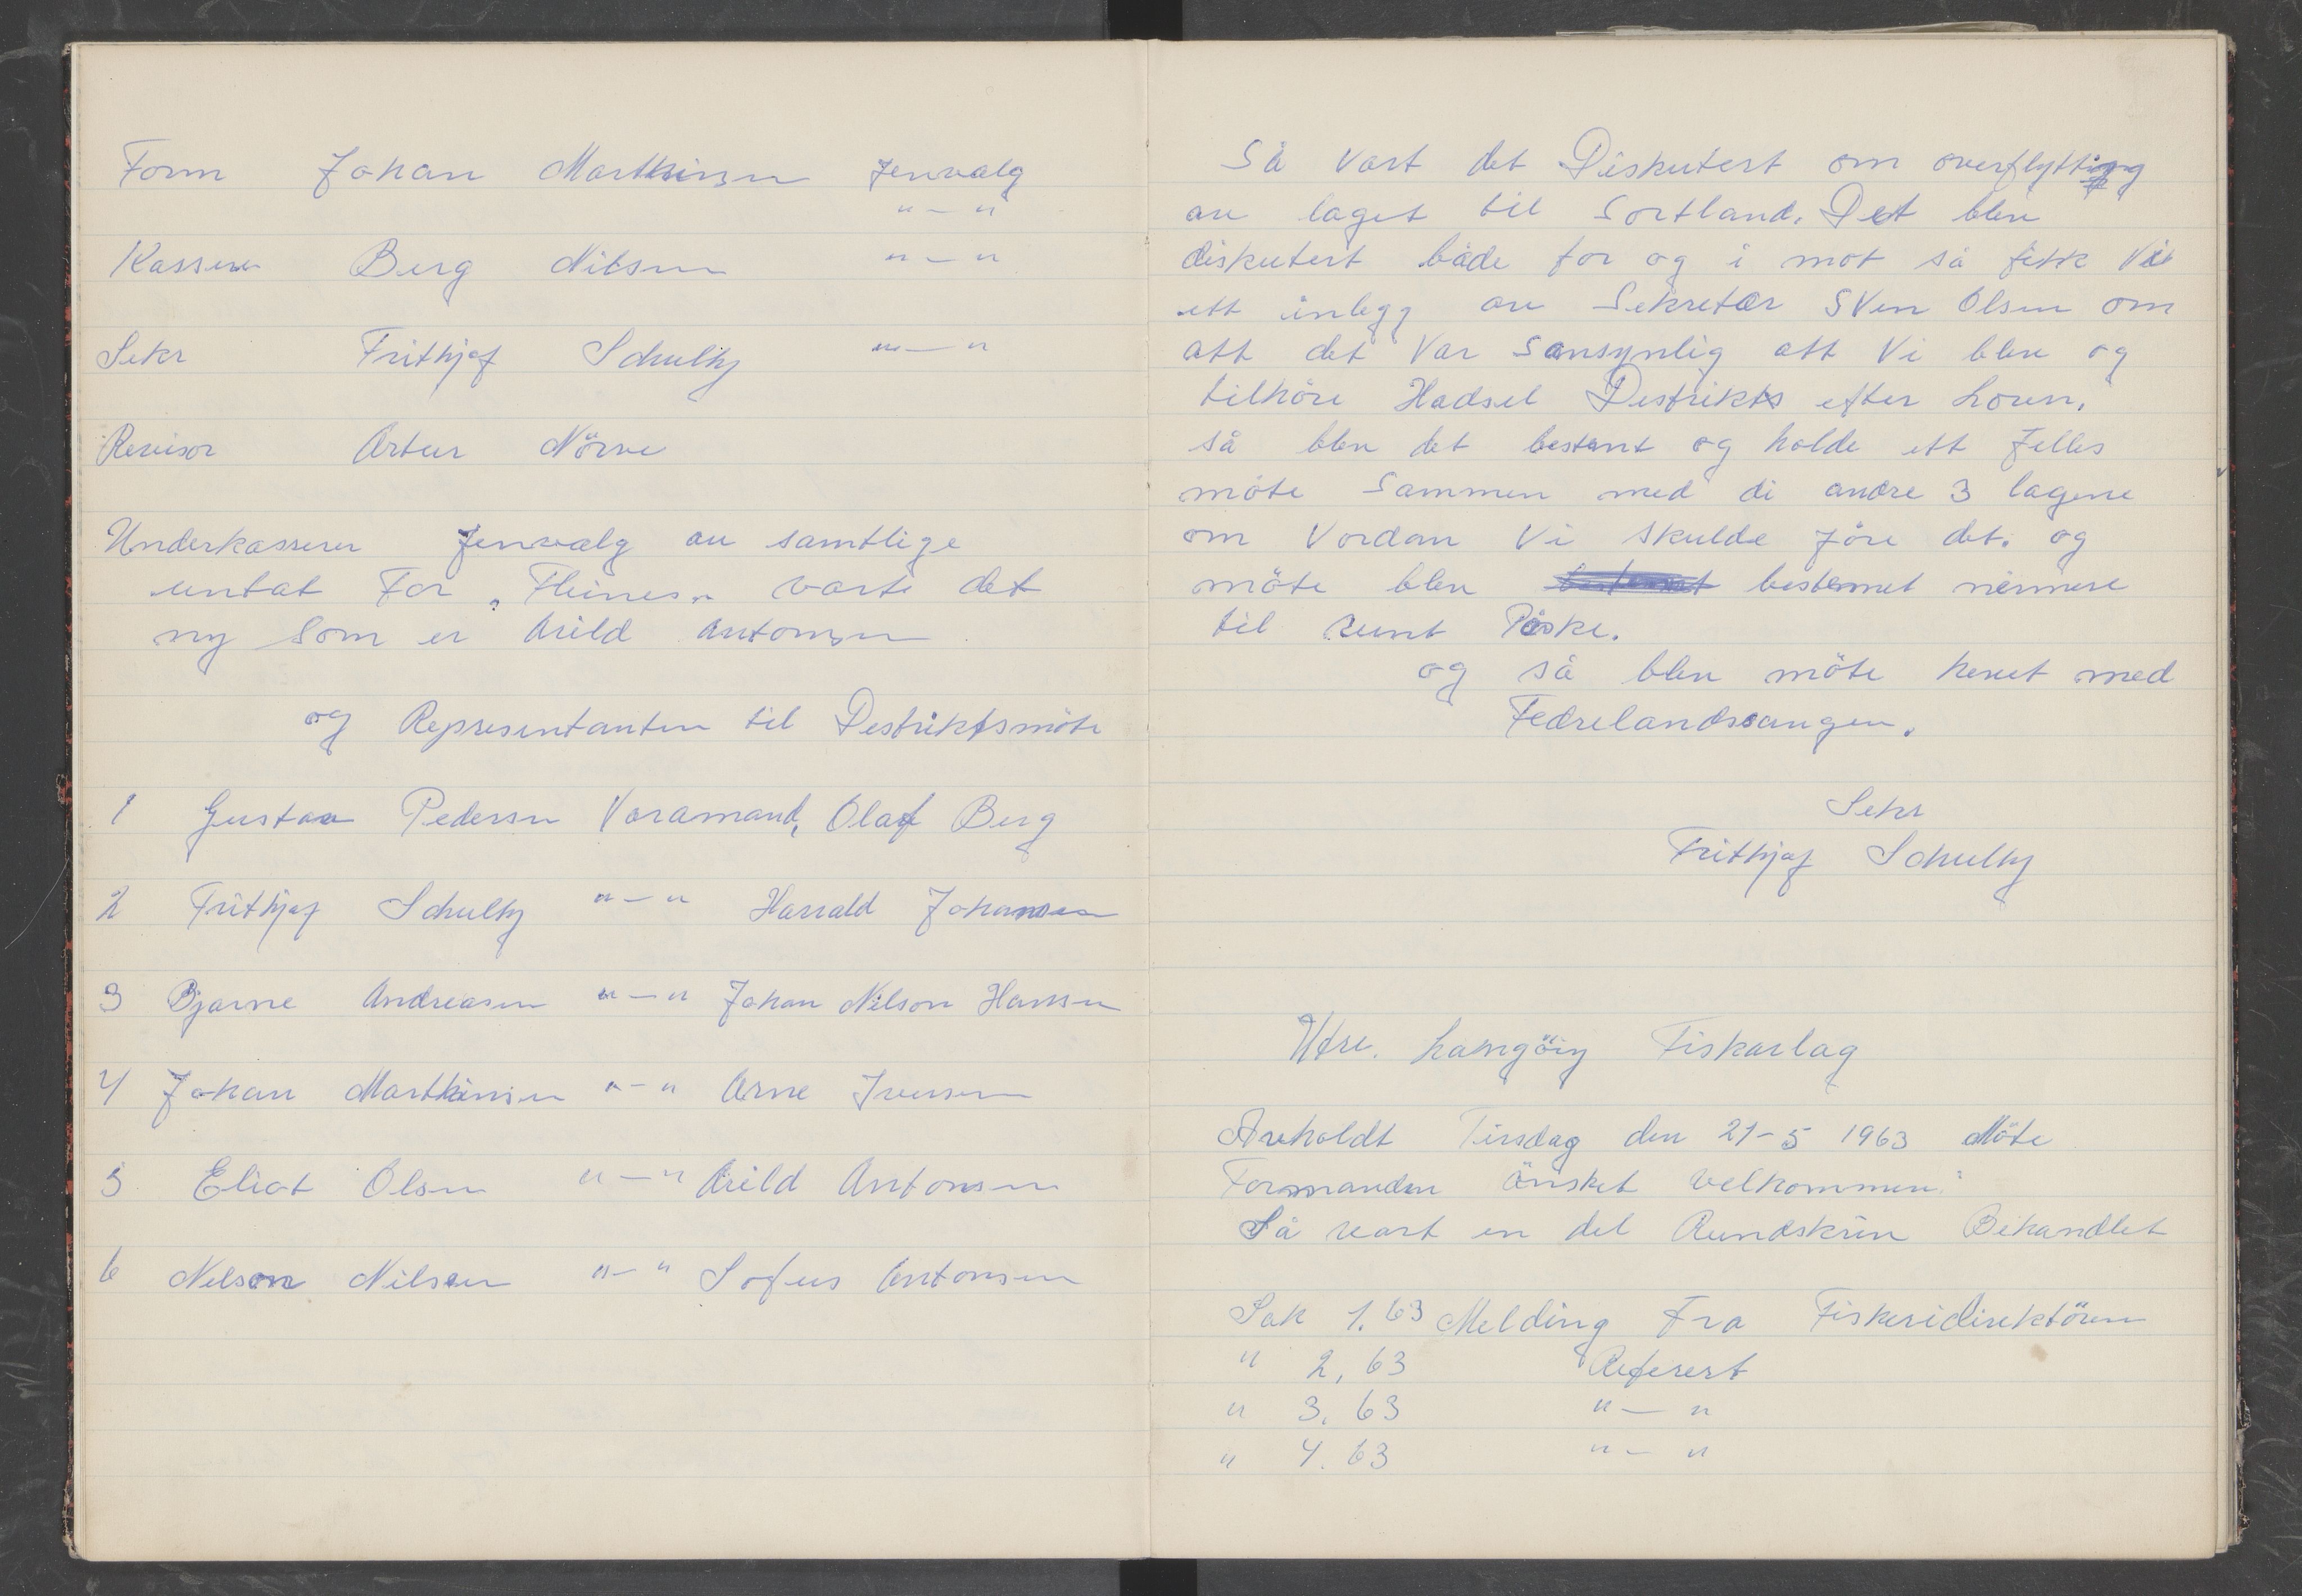 Form Johan Marthinsen Jenvalg
" — "
Kasserer Berg Nilsen " — "
Sekr Frithjof Schultz " — "
Revisor Artur Nörve
Underkasserer Jenvalg av samtlige
untat For „Fleines„ varte det
ny som er Arild Antonsen
og Representanten til Destriktsmöte
1 Gustav Pedersen Varamand, Olaf Berg
2 Frithjof Schultz " — " Harald Johansen
3 Bjarne Andreasen " — " Johan Nilson Hansen
4 Johan Marthinsen " — " Arne Iversen
5 Eliot Olsen " — " Arild Antonsen
6 Nelson Nilsen " — " Sofus Antonsen
Så vart det Diskutert om overflytting
av laget til Sortland. Det blev
diskutert både for og i mot så fikk Vi
ett inlegg av Sekretær Sven Olsen om
att det Var Sansynlig att Vi blev og
tilhöre Hadsel Destrikts efter Loven.
så blev det bestemt og holde ett felles
möte Sammen med di andre 3 lagene
om Vordan Vi skulde före det. og
möte blev bestemet nermere
til runt Påske.
og så blev möte hevet med
Fedrelandssangen.
Sekr
Frithjof Schultz
Ytre. Langöiy Fiskarlag
Avholdt Tirsdag den 21-5 1963 Möte
Formanden önsket velkommen
Så vart en del Rundskriv Behandlet
Sak 1.63 Melding Fra Fiskeridirektören
" 2,63 Referert
" 3,63 " — "
" 4.63 " — "